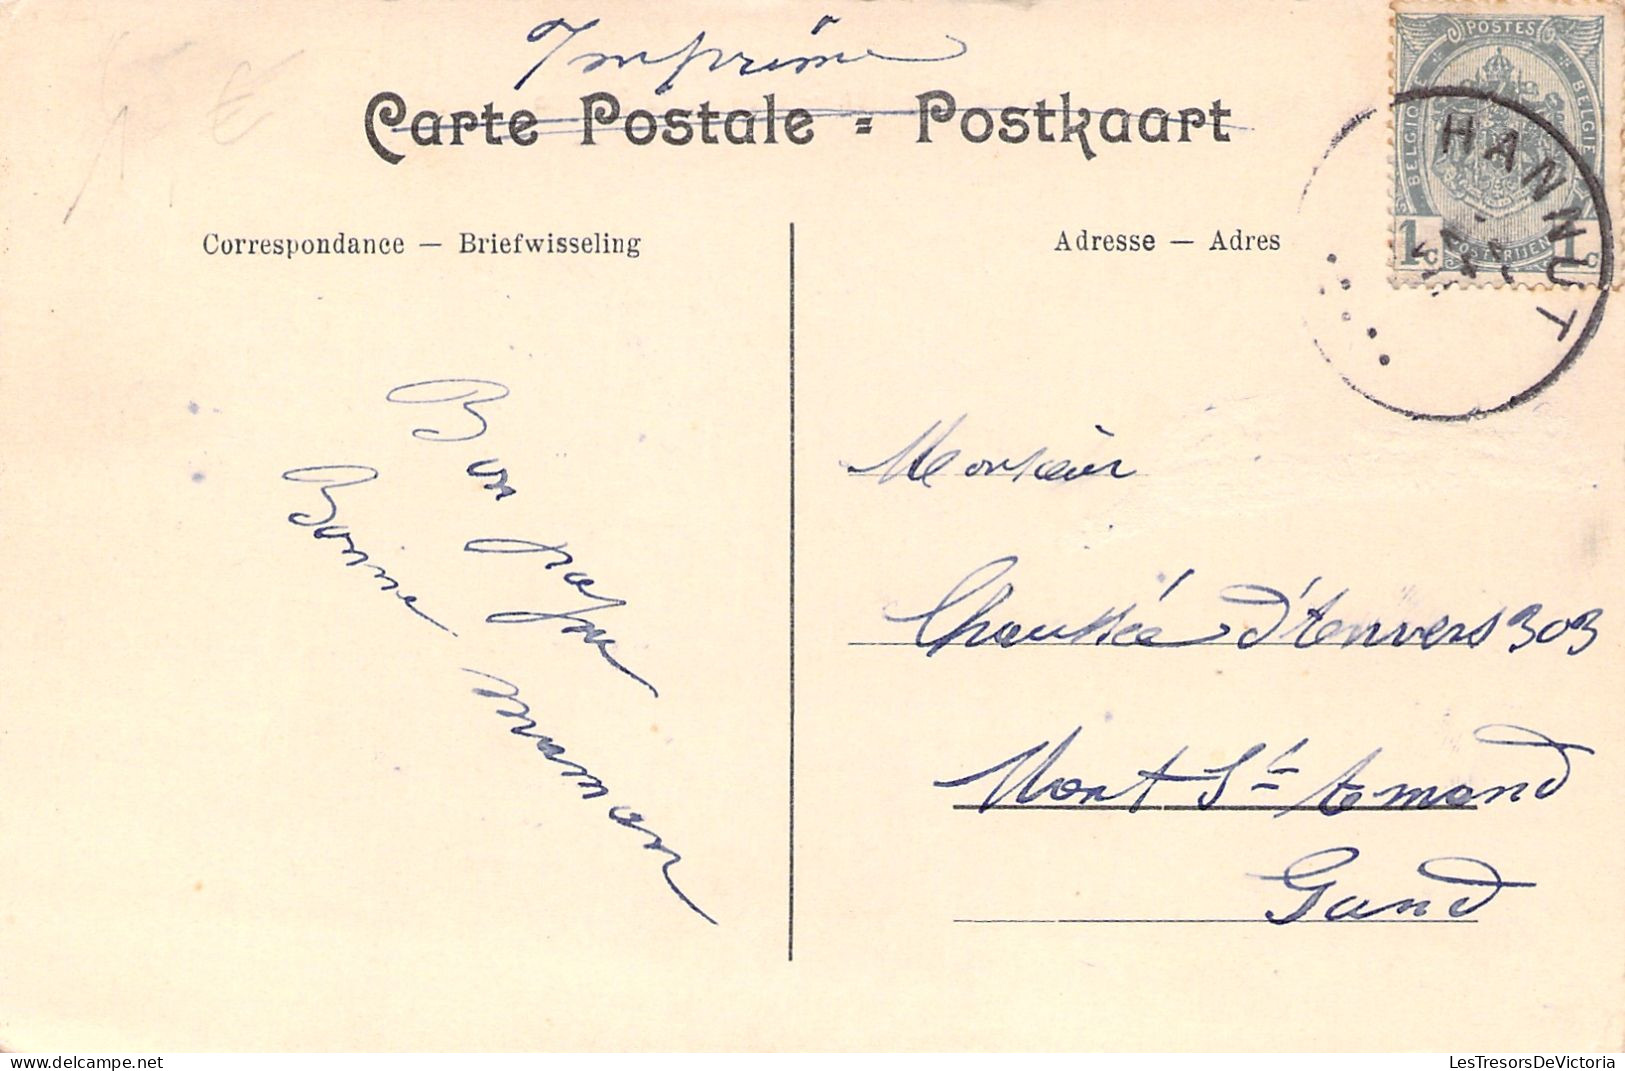 Imprimé
Carte Postale = Postkaart
POSTES
BELGIQUE BELGIË
1c POSTERIJEN 1c
HANNUT
Correspondance — Briefwisseling
Adresse — Adres
Bon papa
Bonne maman
Monsieur
Chaussée d'Anvers 303
Mont St Amand
Gand
delcampe.net
LesTresorsDeVictoria